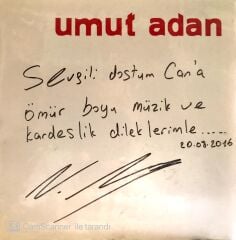 umut adan
Sevgili dostum Can'a
ömür boyu müzik ve
kardeşlik dileklerimle......
20.08.2016
CamScanner ile tarandı